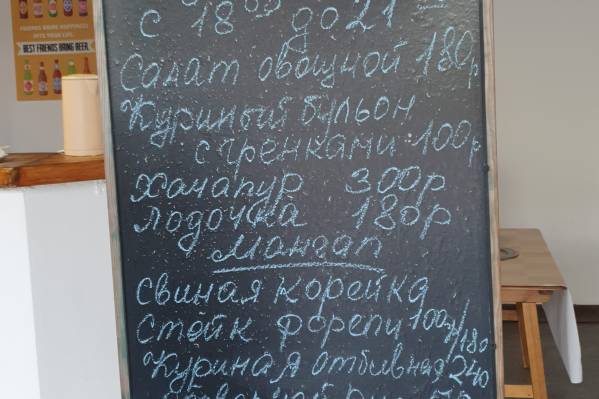 FRIENDS BRING HAPPINESS
INTO YOUR LIFE.
BEST FRIENDS BRING BEER.
с 18 00 до 21
Салат овощной 180р
Куриный бульон
с гренками 100р
Хачапур 300р
лодочка 180р
Мангал
свиная корейка
стейк форели 100г/180
Куриная отбивная 240